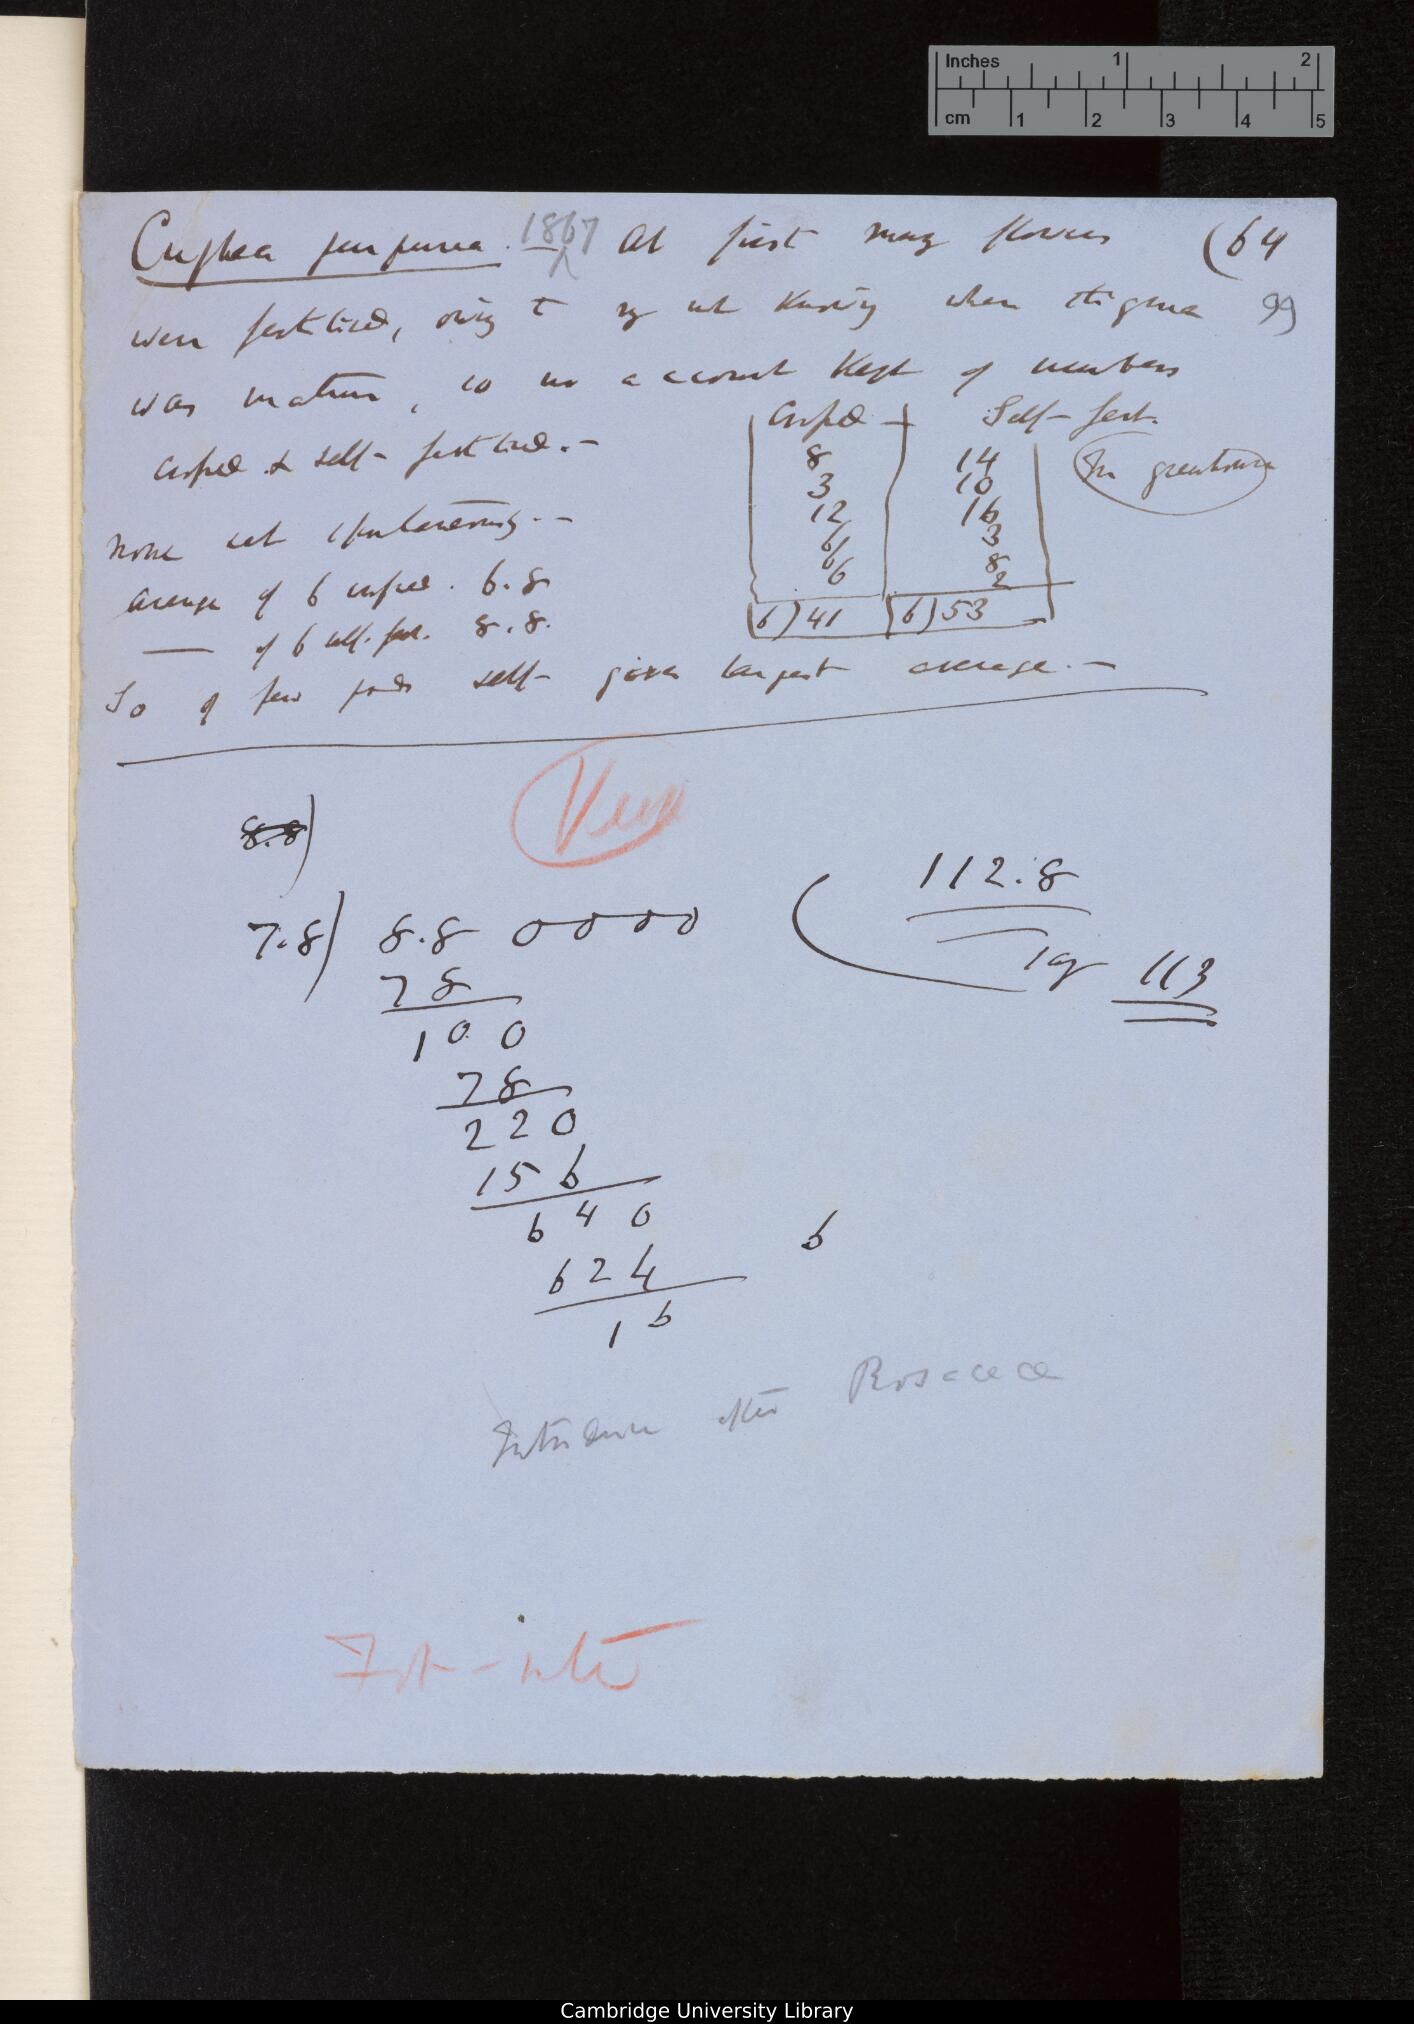 Inches 1 2
cm 1 2 3 4 5
Cuphea purpurea. 1867 At first many flowers (64
were fertilised, owing to my not knowing when stigma 99
was mature, so no account kept of numbers
crossed & self-fertilised.—
Crossed Self-fert.
8 14
3 10
12 16
6 3
6 8
6 2
6) 41 6) 53
In greenhouse
None set spontaneously.—
Average of 6 crossed. 6.8
— of 6 self-fert. 8.8.
So of few pods self- gives largest average.—
8.8)
7.8) 8.8 0000 (112.8
78
100
78
220
156
640
624
16
say 113
6
Introduce after Rosaceæ
Cambridge University Library